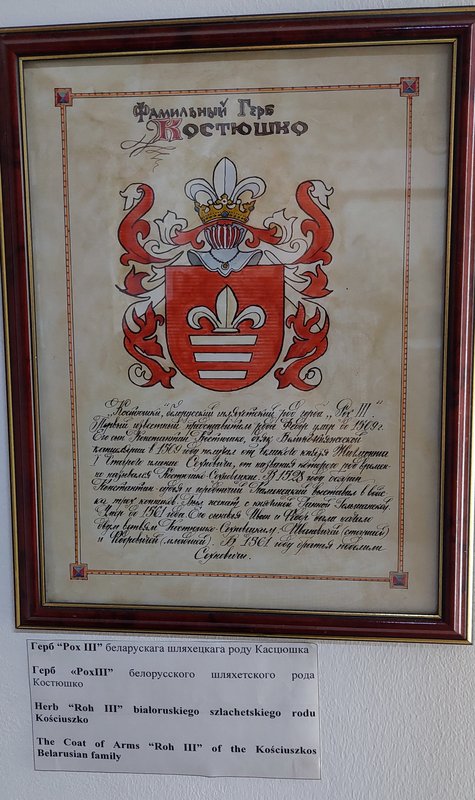 Фамильный Герб
Костюшко
„Костюшки", белорусский шляхетский род герба „Рох III".
Первый известный представитель рода Федор умер до 1509 г.
Его сын Константин Костюшко, дьяк Великокняжеской
канцелярии в 1509 году получил от великого князя Жигимонта
I Старого имение Сехновичи, от названия которого род времен-
но назывался Костюшко-Сехновицкие. В 1528 году
Константин судья и Каменецкий выставлял в войс-
ко трех конников. Был женат с княжной Анной Гольшанской
Умер до 1561 года. Его сыновья Иван и Федор дали начало
двум ветвям Костюшко-Сехновицким: Ивановичей (старшей)
и Федоровичей (младшей). В 1561 году братья поделили
Сехновичи.
Герб “Рох III” беларускага шляхецкага роду Касцюшка
Герб «РохIII” белорусского шляхетского рода
Костюшко
Herb “Roh III” białoruskiego szlachetskiego rodu
Kościuszko
The Coat of Arms “Roh III” of the Kościuszkos
Belarusian family